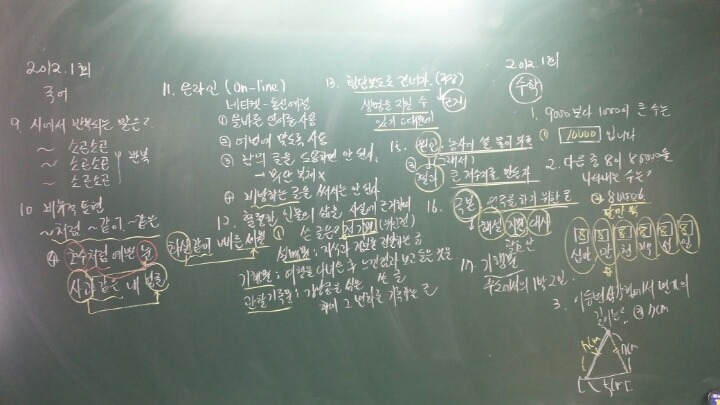 2012. 1회
국어
9. 시에서 반복되는 말은?
~ 소곤소곤
~ 소곤소곤 반복
~ 소곤소곤
10. 비유적 표현
~처럼 ~같이 ~같은
④ 호수처럼 예쁜 눈
사과같은 내 얼굴
11. 온라인 (On-line)
네티켓 - 통신예절
① 올바른 언어를 사용
② 어법에 맞도록 사용
③ 남의 글을 도용하면 안 된다.
→ 무단 복제 X
④ 비방하는 글을 써서는 안 된다
12. 훌륭한 인물의 삶을 사실에 근거하여
① 쓴 글은? 전기문
설명문 : 지식과 정보를 전달하는 글
기행문 : 여행을 다녀온 후 느낀점과 보고 들은 것을 쓴 글
관찰기록문 :
13. 횡단보도로 건너자. (주장)
생명을 지킬 수 근거
있기 때문에
14. 원인 : 농사에 쓸 물이 부족
② (그래서)
결과 큰 저수지를 만들자
16. 극본 : 연극을 하기 위한 글
해설 지문 대사
17. 기행문
에서의 1박 2일.
2012. 1회
수학
1. 9000보다 1000이 큰 수는
① 10000 입니다
2. 다음 중 8이 80000을
나타내는 수는?
8 8 8 8 8 8
십만 만 천 백 십 일
3. 이등변삼각형에서 변 ㄱ의
길이는? ③ 7cm
7cm 7cm